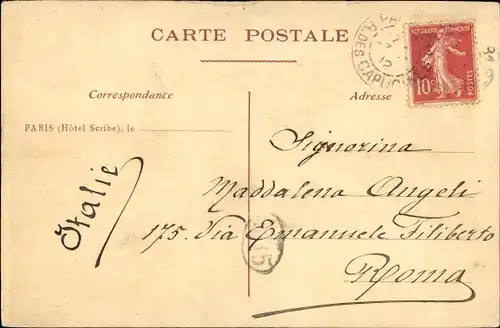 CARTE POSTALE
Correspondance
Adresse
PARIS (Hôtel Scribe), le
Italie
Signorina
Maddalena Angeli
175. Via Emanuele Filiberto
Roma
REPUBLIQUE FRANÇAISE
10c
POSTES
R. DES CAPUC